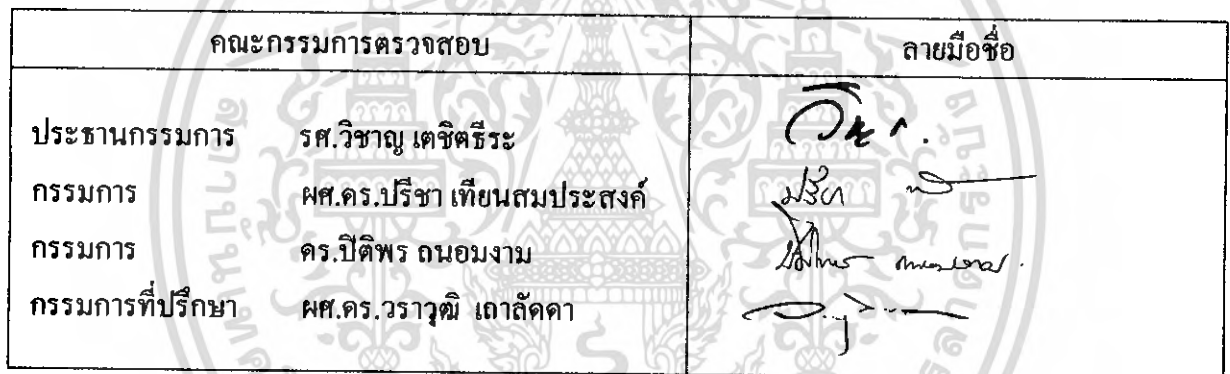 คณะกรรมการตรวจสอบ ลายมือชื่อ
ประธานกรรมการ รศ.วิชาญ เตชิตธีระ
กรรมการ ผศ.ดร.ปรีชา เทียนสมประสงค์
กรรมการ ดร.ปิติพร ถนอมงาม
กรรมการที่ปรึกษา ผศ.ดร.วราวุฒิ เถาลัดดา